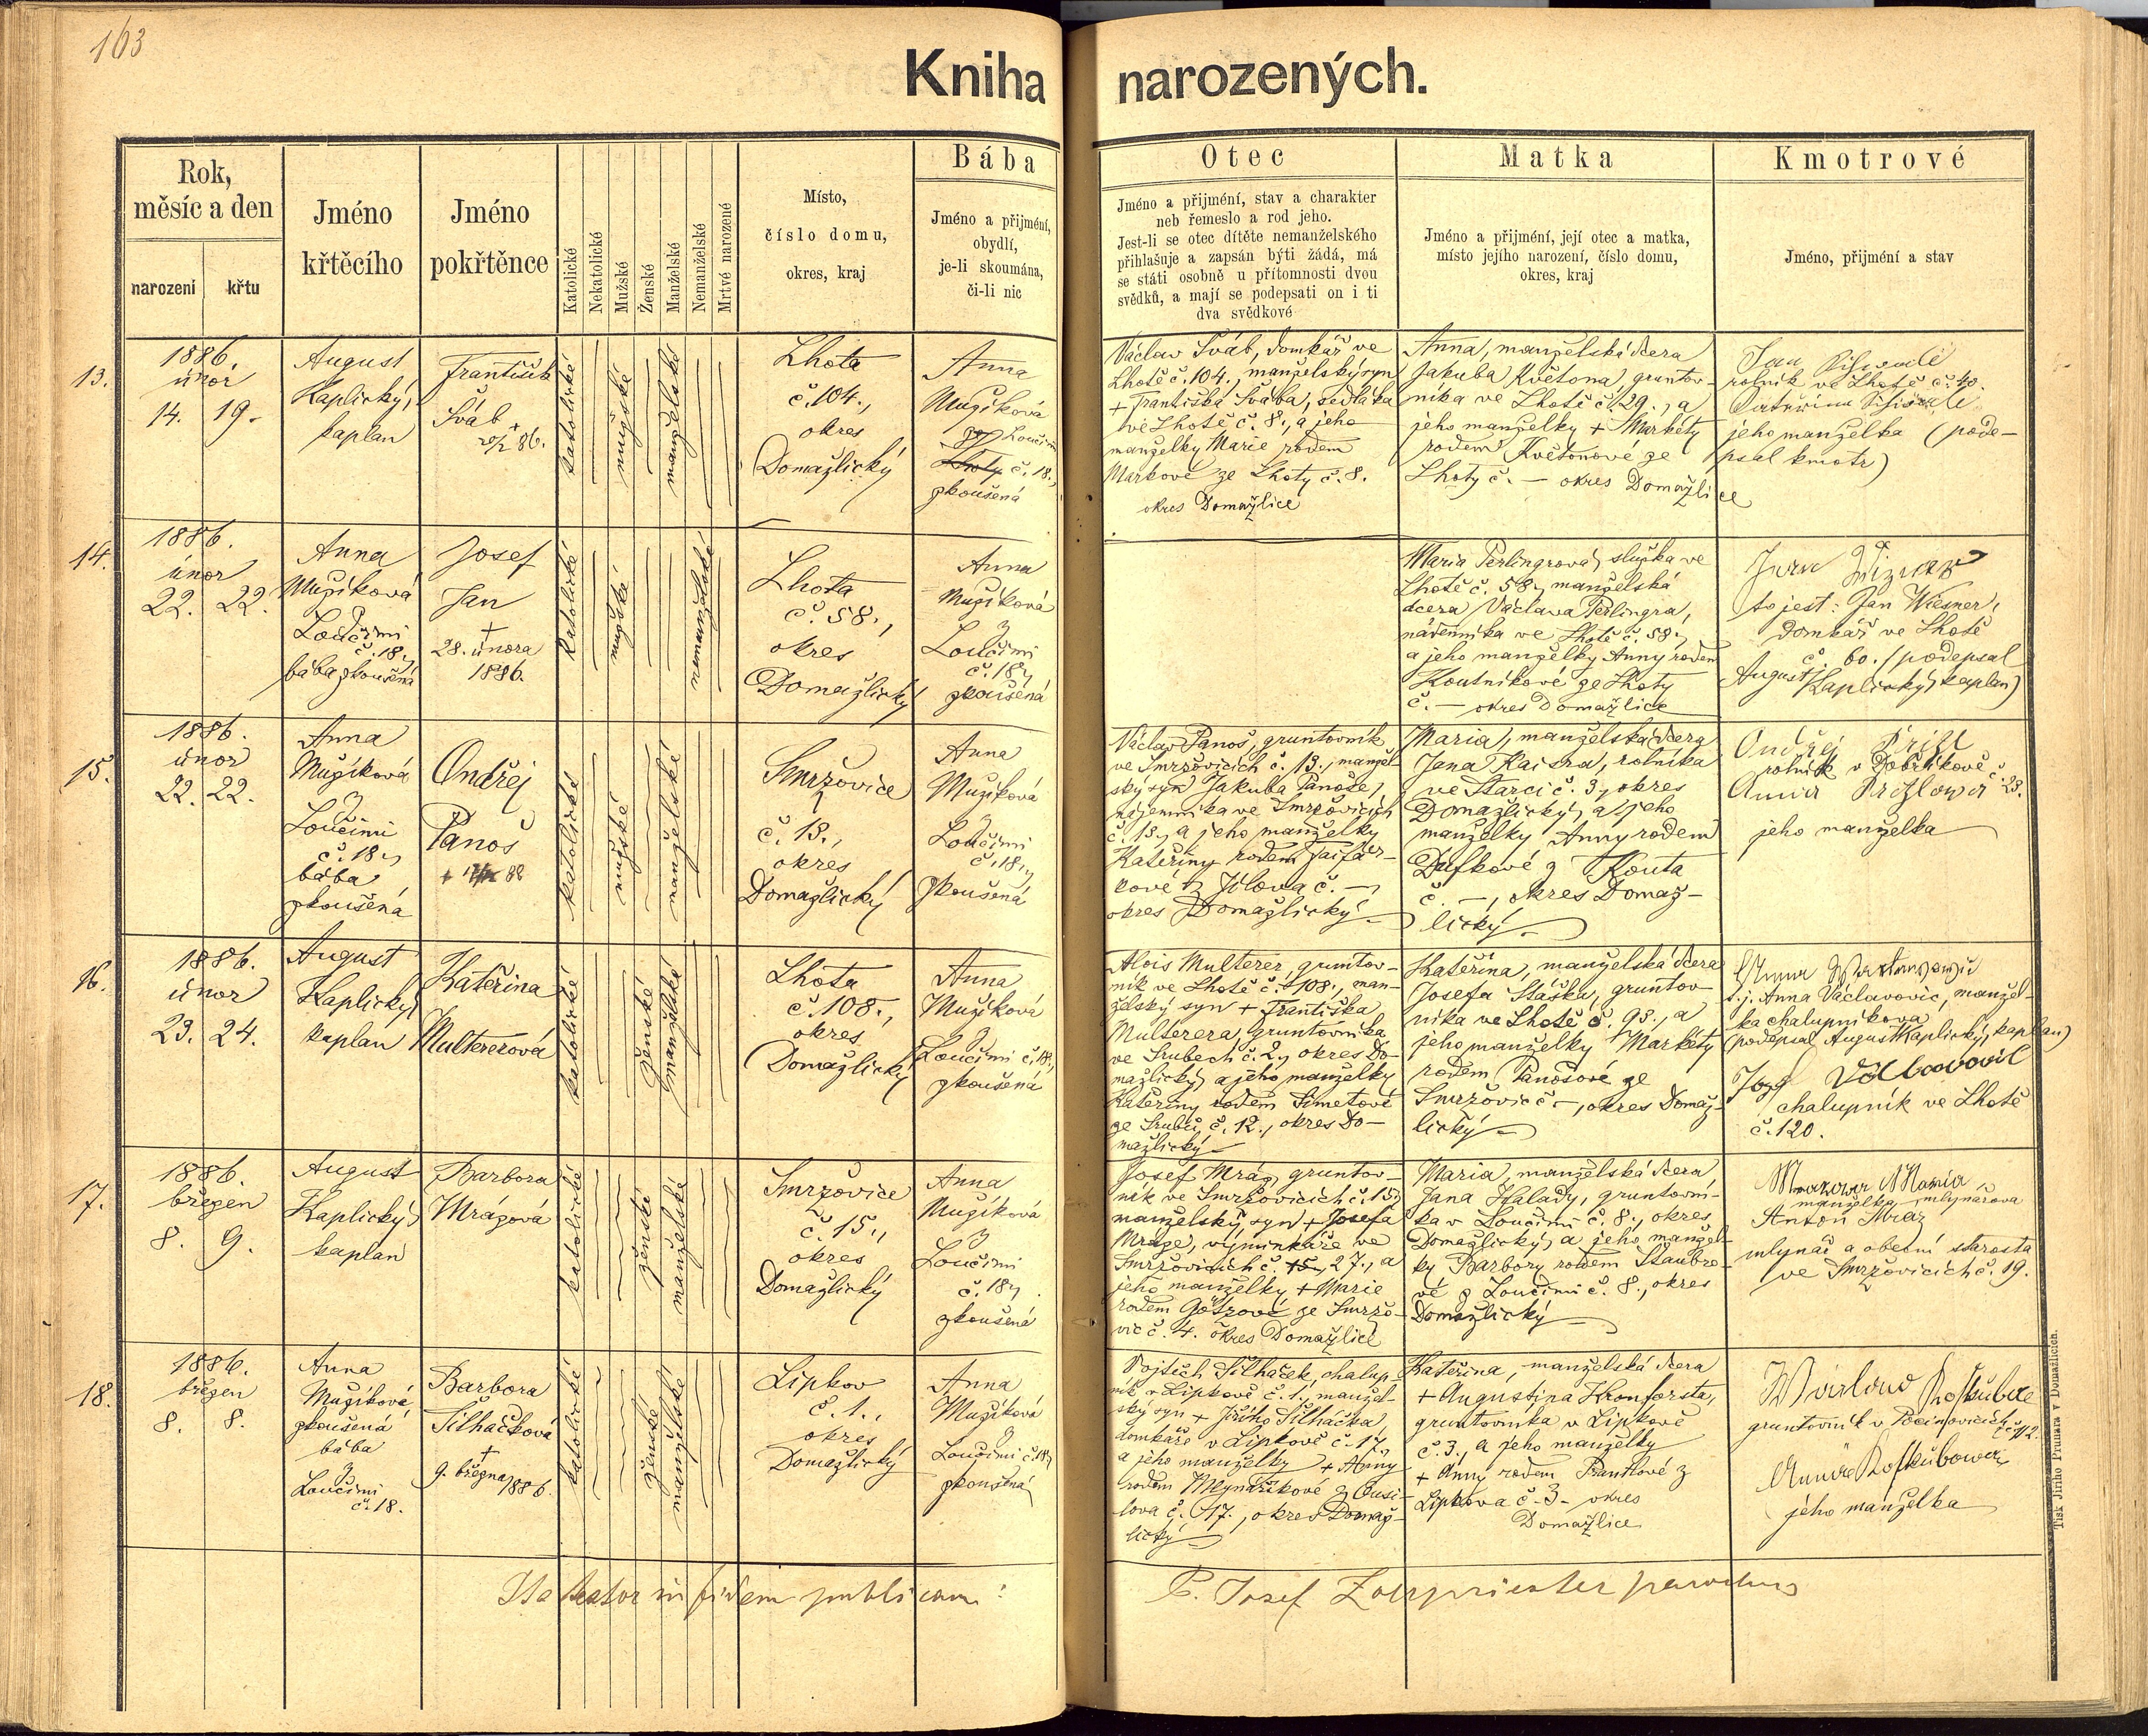 163
Kniha narozených.
Rok,
měsíc a den
narození
křtu
Jméno
křtěcího
Jméno
pokřtěnce
Katolické
Nekatolické
Mužské
Ženské
Manželské
Nemanželské
Mrtvé narozené
Místo,
číslo domu,
okres, kraj
Bába
Jméno a přijmění,
obydlí,
je-li skoumána,
či-li nic
Otec
Jméno a přijmění, stav a charakter
neb řemeslo a rod jeho.
Jest-li se otec dítěte nemanželského
přihlašuje a zapsán býti žádá, má
se státi osobně u přítomnosti dvou
svědků, a mají se podepsati on i ti
dva svědkové
Matka
Jméno a přijmění, její otec a matka,
místo jejího narození, číslo domu,
okres, kraj
Kmotrové
Jméno, přijmění a stav
13.
1886.
únor
14. 19.
August
Kaplický,
kaplan
František
Šváb
+
20/2 86.
katolické
mužské
manželské
Lhota
č. 104.,
okres
Domažlický
Anna
Mužíková
z Loučim
Lhoty č. 18.,
zkoušená
Václav Šváb, domkář ve
Lhotě č. 104., manželský syn
+ Františka Švába, sedláka
ve Lhotě č. 8., a jeho
manželky Marie rodem
Markové ze Lhoty č. 8.
okres Domažlice
Anna, manželská dcera
Jakuba Květona, gruntov-
níka ve Lhotě č. 29., a
jeho manželky + Markéty
rodem Květonové ze
Lhoty č. — okres Domažlice
Jan
rolník ve Lhotě č. 40.
jeho manželka (pode-
psal kmotr)
14.
1886.
únor
22. 22.
Anna
Mužíková
z
Loučimi
č. 18.,
bába zkoušená
Josef
Jan
+
28. února
1886.
katolické
mužské
nemanželské
Lhota
č. 58.,
okres
Domažlický
Anna
Mužíková
z
Loučimi
č. 18.,
zkoušená
Maria Perlingrová, služka ve
Lhotě č. 58., manželská
dcera Václava Perlingra,
nádenníka ve Lhotě č. 58.,
a jeho manželky Anny rodem
Koutníkové ze Lhoty
č. — okres Domažlice
to jest: Jan Wiesner,
domkář ve Lhotě
č. 60. (podepsal
August Kaplický, kaplan)
15.
1886.
únor
22. 22.
Anna
Mužíková
z
Loučimi
č. 18.,
bába
zkoušená
Ondřej
Panoš
katolické
mužské
manželské
Smržovice
č. 13.,
okres
Domažlický
Anna
Mužíková
z
Loučimi
č. 18.,
zkoušená
Václav Panoš, gruntovník
ve Smržovicích č. 13., manžel-
ský syn Jakuba Panoše,
nájemníka ve Smržovicích
č. 13., a jeho manželky
Kateřiny rodem
kové z č. —,
okres Domažlický
Maria, manželská dcera
Jana Kaisra, rolníka
ve Starci č. 3, okres
Domažlický, a jeho
manželky Anny rodem
Dufkové z Kouta
č. —, okres Domaž-
lický
Ondřej
rolník v Dobříkově č. 23.
jeho manželka
16.
1886.
únor
23. 24.
August
Kaplický,
kaplan
Kateřina
Multererová
katolické
ženské
manželské
Lhota
č. 108.,
okres
Domažlický
Anna
Mužíková
z
Loučimi č. 18.,
zkoušená
Alois Multerer, gruntov-
ník ve Lhotě č. 108., man-
želský syn + Františka
Multerera, gruntovníka
ve Srubech č. 2, okres Do-
mažlický, a jeho manželky
Kateřiny rodem Šimetové
ze Srubů, č. 12., okres Do-
mažlický
Kateřina, manželská dcera
Josefa Stáška, gruntov-
níka ve Lhotě č. 98., a
jeho manželky Markéty
rodem Panošové ze
Smržovic č. —, okres Domaž-
lický
t. j. Anna Václavovic, manžel-
ka chalupníkova
(podepsal August Kaplický, kaplan)
chalupník ve Lhotě
č. 120.
17.
1886.
březen
8. 9.
August
Kaplický,
kaplan
Barbora
Mrázová
katolické
ženské
manželské
Smržovice
č. 15.,
okres
Domažlický
Anna
Mužíková
z
Loučimi
č. 18.,
zkoušená
Josef Mráz, gruntov-
ník ve Smržovicích č. 15.,
manželský syn + Josefa
Mráze, výminkáře ve
Smržovicích č. 15., 27., a
jeho manželky + Marie
rodem Götzové ze Smržo-
vic č. 4. okres Domažlice
Maria, manželská dcera
Jana Halady, gruntovní-
ka v Loučimi č. 8., okres
Domažlický, a jeho manžel-
ky Barbory rodem Štaubro-
vé z Loučimi č. 8., okres
Domažlický
Mrazowa Maria
manželka mlynářova
Anton Mraz
mlynář a obecní starosta
ve Smržovicích č. 19.
18.
1886.
březen
8. 8.
Anna
Mužíková
zkoušená
bába
z
Loučimi
č. 18.
Barbora
Šilháčková
+
9. března 1886.
katolické
ženské
manželské
Lipkov
č. 1.,
okres
Domažlický
Anna
Mužíková
z
Loučimi č. 18.,
zkoušená
Vojtěch Šilháček, chalup-
ník v Lipkově č. 1., manžel-
ský syn + Jiřího Šilháčka,
domkáře v Lipkově č. 17.,
a jeho manželky + Anny
rodem Mlynaříkové z
lova č. 17., okres Domaž-
lický
Kateřina, manželská dcera
+ Augustina Kronforsta,
gruntovníka v Lipkově
č. 3., a jeho manželky
+ Anny rodem z
Lipkova č. 3. okres
Domažlice
gruntovník v Pocinovicích č. 112.
jeho manželka
Ita testor in fidem publicam:
P. Josef parochus
Tisk Jiřího Prunara v Domažlicích.